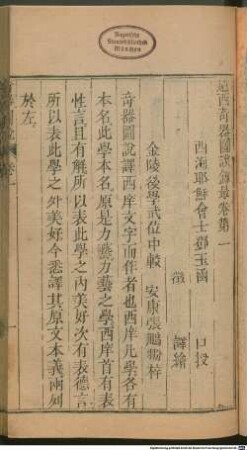 Bayerische
Staatsbibliothek
München
遠西奇器圖說錄最卷第一
西海耶穌會士鄧玉函 口授
譯繪
金陵後學武位中較 安康張鵬翂梓
奇器圖說譯西庠文字而作者也西庠凡學各有
本名此學本名原是力藝力藝之學西庠首有表
性言且有解所以表此學之內美好次有表德言
所以表此學之外美好今悉譯其原文本義兩列
於左